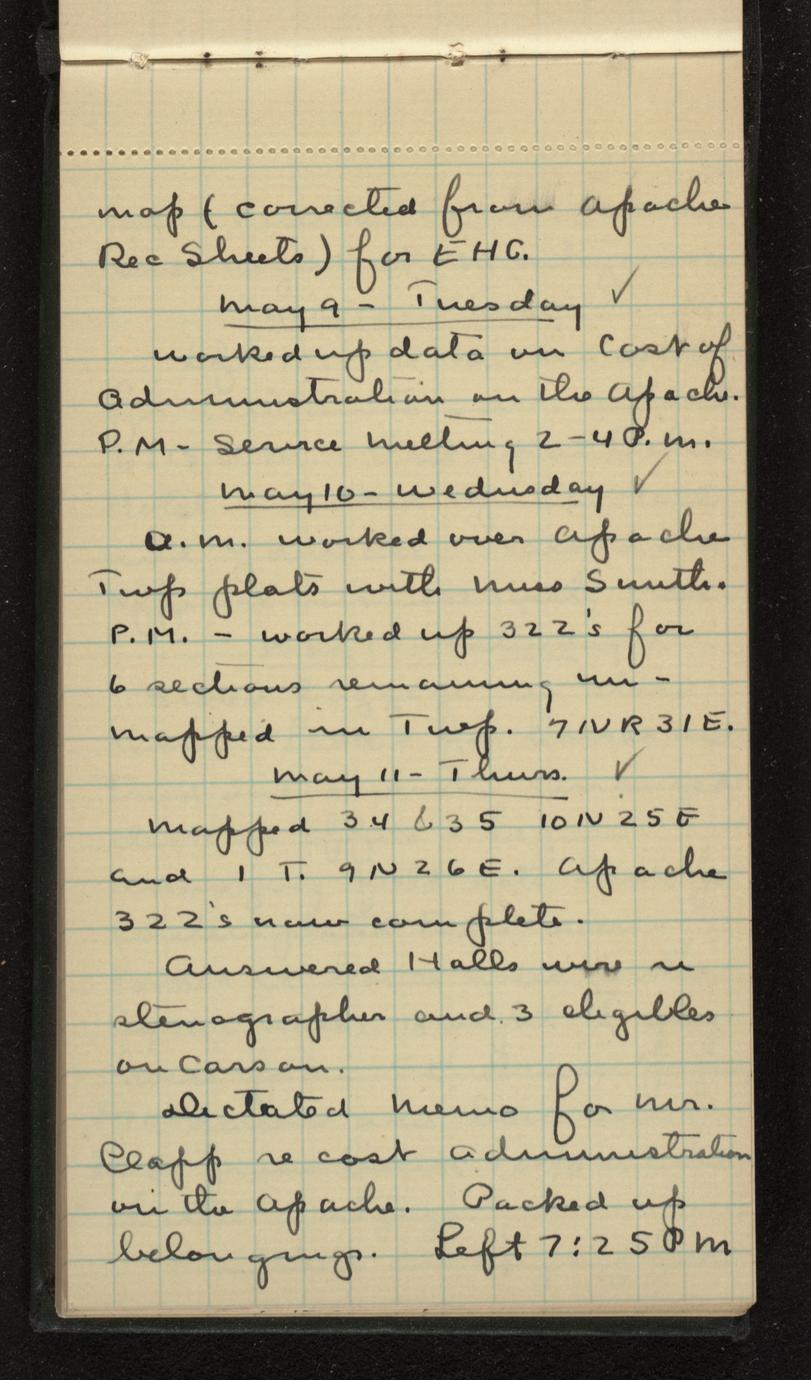 map (corrected from Apache
Rec Sheets) for EHC.
May 9 - Tuesday ✓
worked up data on Cost of
Administration on the Apache.
P.M - Service Meeting 2-4 P.m.
May 10 - Wednesday ✓
a.m. worked over Apache
Twp plats with Miss Smith.
P.M. - worked up 322's for
6 sections remaining un-
mapped in Twp. 7 N R 31 E.
May 11 - Thurs. ✓
Mapped 34 & 35 10 N 25 E
and 1 T. 9 N 26 E. Apache
322's now complete.
Answered Halls wire re
stenographer and 3 eligibles
on Carson.
Dictated Memo for Mr.
Clapp re cost administration
on the Apache. Packed up
belongings. Left 7:25 PM